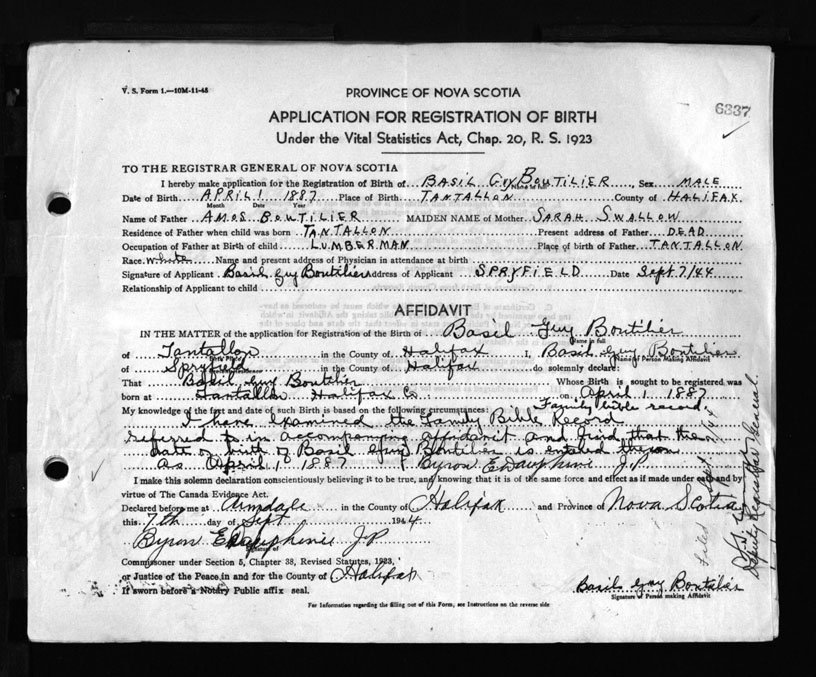 V. S. Form 1.—10M-11-45
PROVINCE OF NOVA SCOTIA
6337
APPLICATION FOR REGISTRATION OF BIRTH
Under the Vital Statistics Act, Chap. 20, R. S. 1923
TO THE REGISTRAR GENERAL OF NOVA SCOTIA
I hereby make application for the Registration of Birth of BASIL GUY BOUTILIER, Sex MALE
Name in full
Date of Birth APRIL 1 1887 Place of Birth TANTALLON County of HALIFAX
Month Date Year
Name of Father AMOS BOUTILIER MAIDEN NAME of Mother SARAH SWALLOW
Residence of Father when child was born TANTALLON Present address of Father DEAD
Occupation of Father at Birth of child LUMBERMAN Place of birth of Father TANTALLON
Race White Name and present address of Physician in attendance at birth
Signature of Applicant Basil Guy Boutilier Address of Applicant SPRYFIELD Date Sept 7/44
Relationship of Applicant to child
AFFIDAVIT
IN THE MATTER of the application for Registration of the Birth of Basil Guy Boutilier
Name in full
of Tantallon in the County of Halifax I, Basil Guy Boutilier
Birth Place Name of Person Making Affidavit
of Spryfield in the County of Halifax do solemnly declare:
That Basil Guy Boutilier Whose Birth is sought to be registered was
born at Tantallon Halifax Co on April 1 1887
My knowledge of the fact and date of such Birth is based on the following circumstances: Family bible record
I have examined the Family Bible Record
referred to in accompanying affidavit and find that the
date of birth of Basil Guy Boutilier is entered thereon
as April 1 1887 Byron E Dauphinee J.P.
I make this solemn declaration conscientiously believing it to be true, and knowing that it is of the same force and effect as if made under oath and by
virtue of The Canada Evidence Act.
Declared before me at Armdale in the County of Halifax and Province of Nova Scotia
this 7th day of Sept 1944
Byron E Dauphinee J.P
Signature of
Commissioner under Section 5, Chapter 38, Revised Statutes, 1923,
or Justice of the Peace in and for the County of Halifax
If sworn before a Notary Public affix seal.
Basil Guy Boutilier
Signature of Person making Affidavit
For Information regarding the filling out of this Form, see Instructions on the reverse side
Filed Sept
Deputy Registrar General.